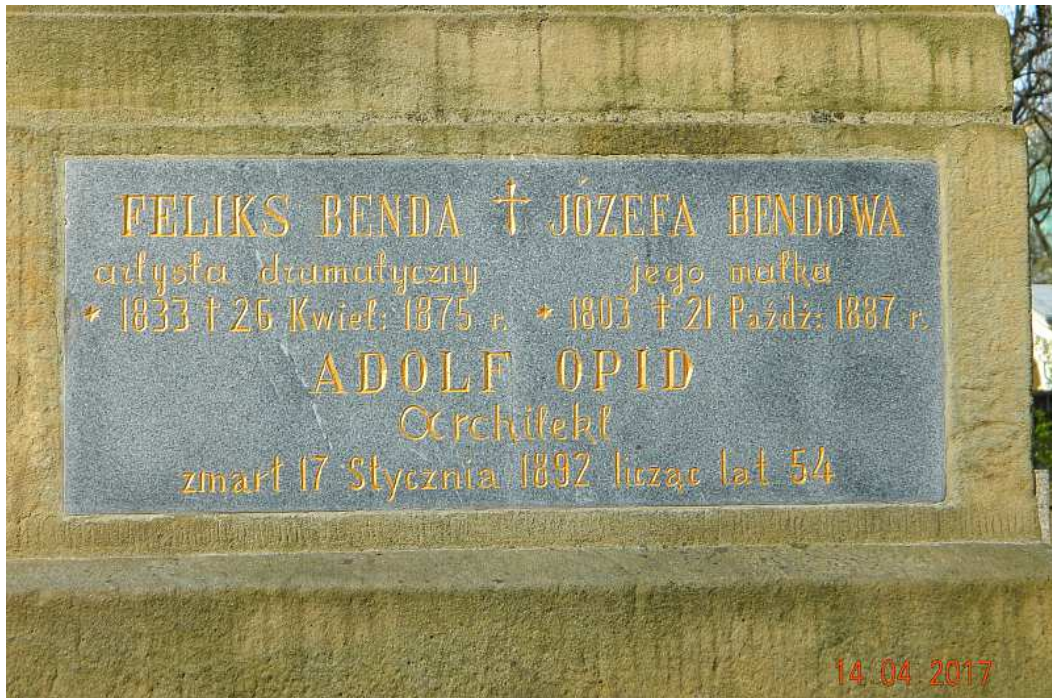 FELIKS BENDA † JÓZEFA BENDOWA
artysta dramatyczny jego matka
* 1833 † 26 Kwiet: 1875 r. * 1803 † 21 Paźdź: 1887 r.
ADOLF OPID
Architekt
zmarł 17 Stycznia 1892 licząc lat 54
14.04.2017